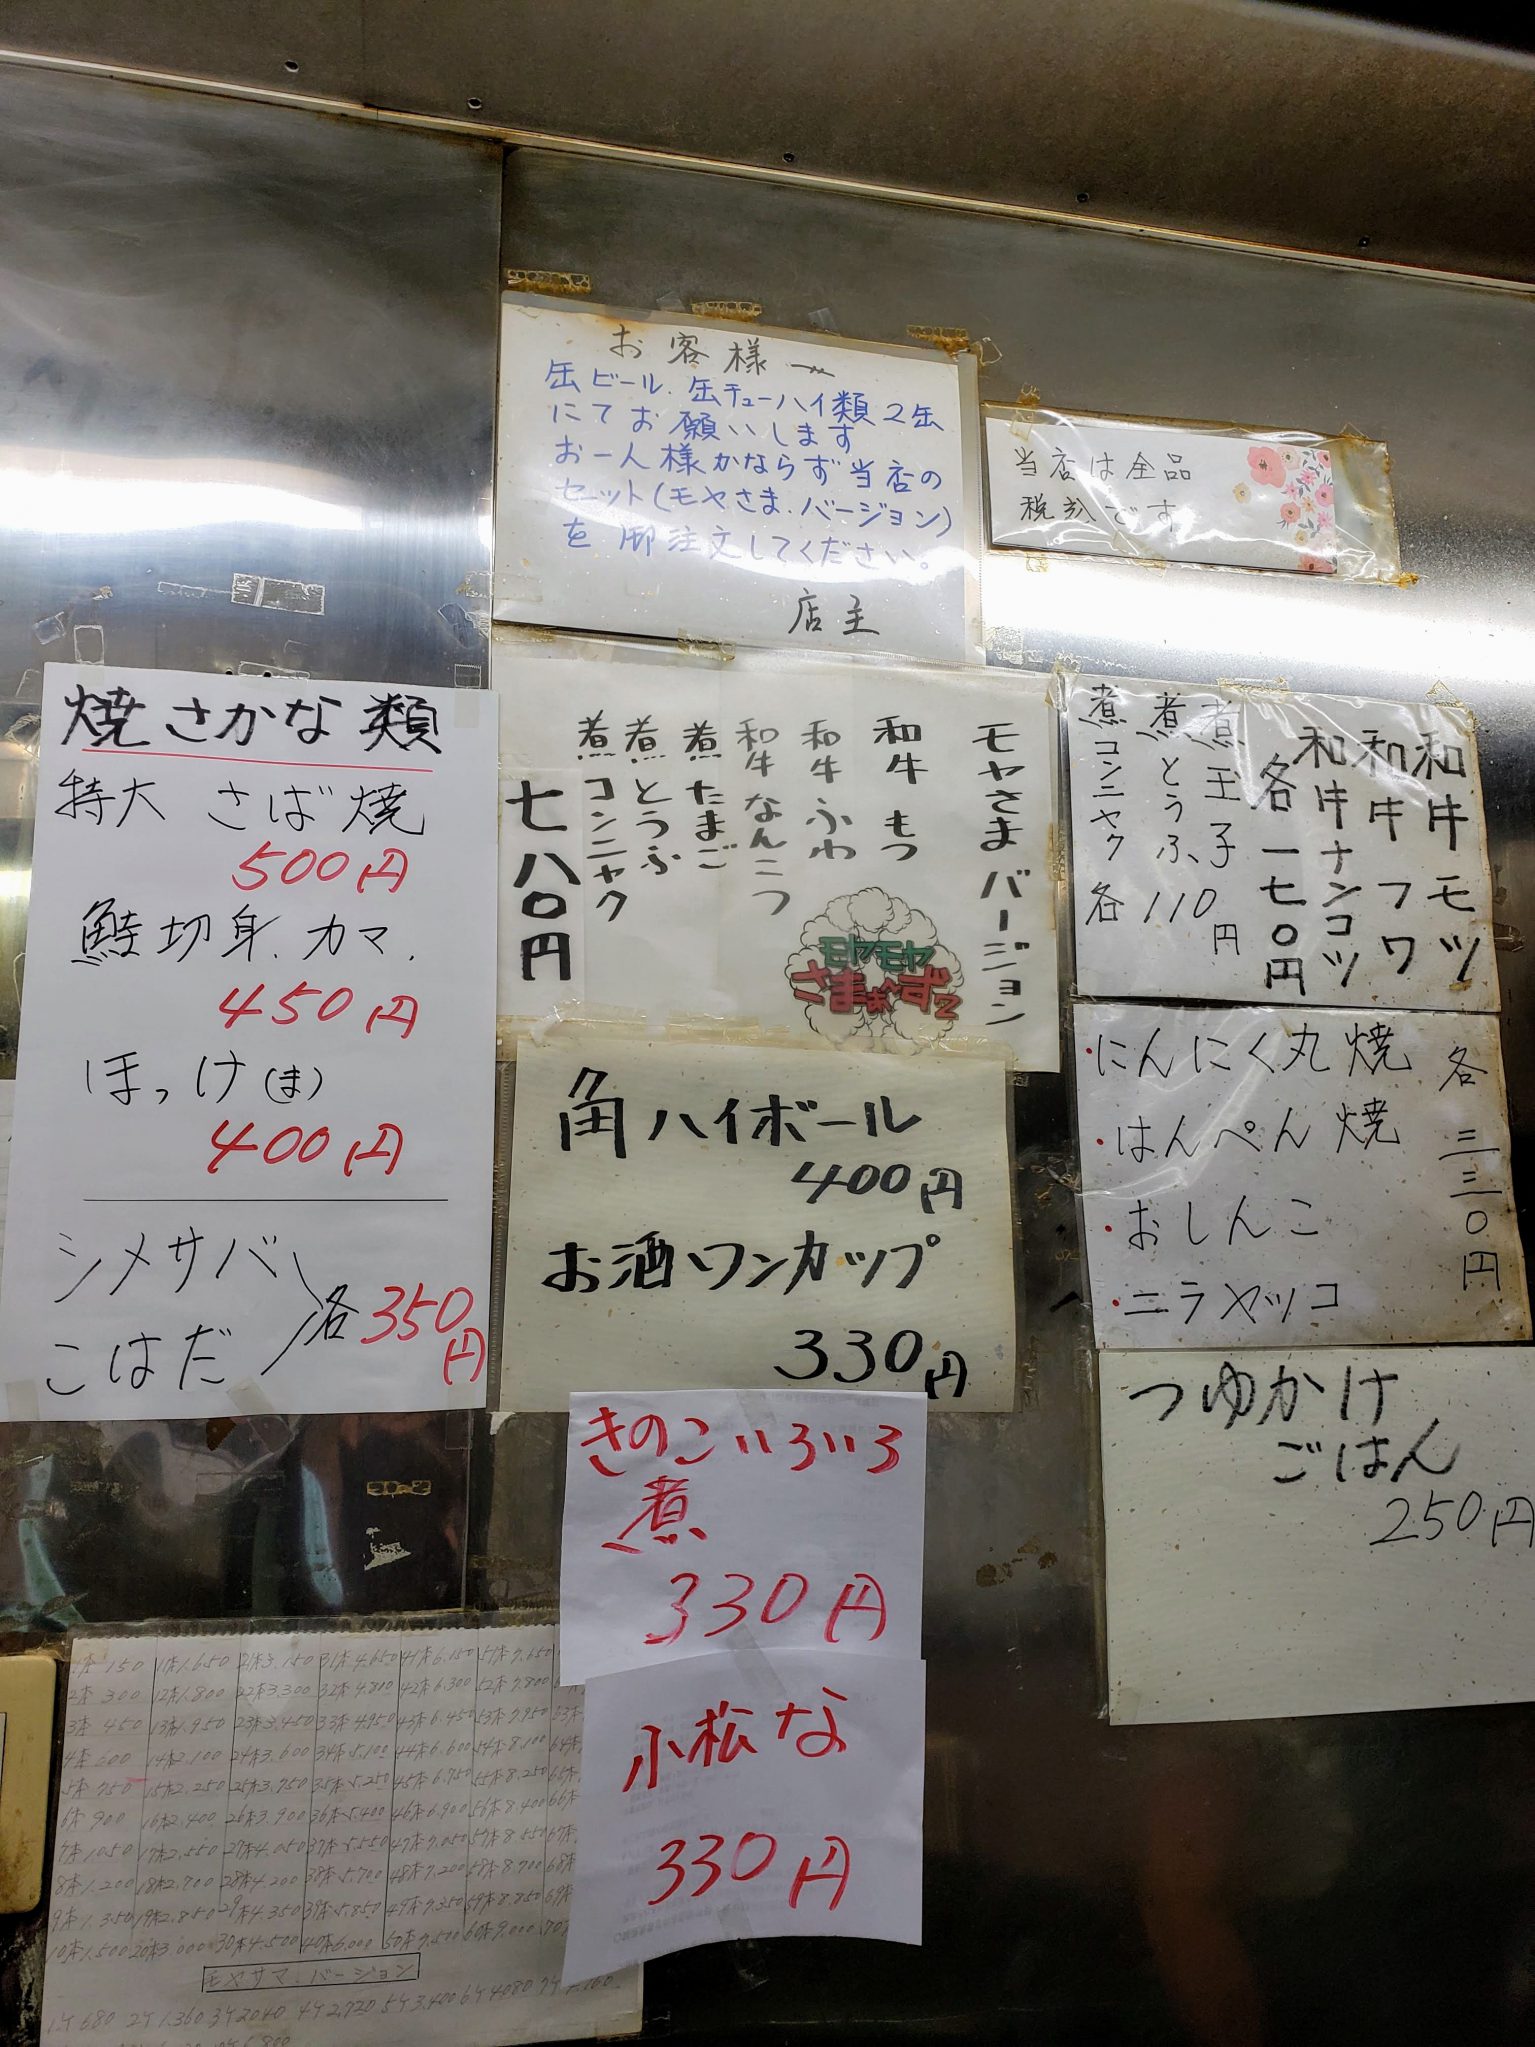 お客様へ
缶ビール、缶チューハイ類2缶
にてお願いします
お一人様かならず当店の
セット(モヤさま、バージョン)
を御注文してください。
店主
当店は全品
税込です
焼さかな類
特大 さば焼
500円
鮭切身、カマ、
450円
ほっけ(ま)
400円
シメサバ
こはだ
各350円
モヤさまバージョン
和牛もつ
和牛ふわ
和牛なんこつ
煮たまご
煮とうふ
煮コンニャク
七八〇円
モヤモヤ
さまぁ~ず2
和牛モツ
和牛フワ
和牛ナンコツ
各一七〇円
煮玉子
煮とうふ
煮コンニャク
各110円
角ハイボール
400円
お酒ワンカップ
330円
・にんにく丸焼
・はんぺん焼
・おしんこ
・ニラヤッコ
各三三〇円
つゆかけ
ごはん
250円
きのこいろいろ
煮
330円
小松な
330円
1本 150 11本1.650 21本3.150 31本4.650 41本6.150 51本7.650
2本 300 12本1.800 22本3.300 32本4.800 42本6.300 52本7.800
3本 450 13本1.950 23本3.450 33本4.950 43本6.450 53本7.950
4本 600 14本2.100 24本3.600 34本5.100 44本6.600 54本8.100
5本 750 15本2.250 25本3.750 35本5.250 45本6.750 55本8.250
6本 900 16本2.400 26本3.900 36本5.400 46本6.900 56本8.400
7本 1.050 17本2.550 27本4.050 37本5.550 47本7.050 57本8.550
8本 1.200 18本2.700 28本4.200 38本5.700 48本7.200 58本8.700
9本 1.350 19本2.850 29本4.350 39本5.850 49本7.350 59本8.850
10本1.500 20本3.000 30本4.500 40本6.000 50本7.500 60本9.000
モヤサマ、バージョン
1ケ680 2ケ1.360 3ケ2040 4ケ2.720 5ケ3.400 6ケ4080